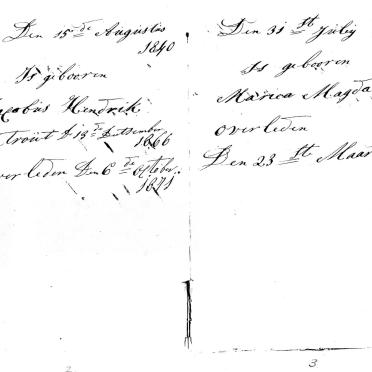 Den 15 de Augustus
1840
Is gebooren
Jacobus Hendrik
trout D 13 de Dettsember
1866
overleden Den 6 de October
1871
2
Den 31 st Julij
Is gebooren
Marica Magda
overleden
Den 23 st Maar
3